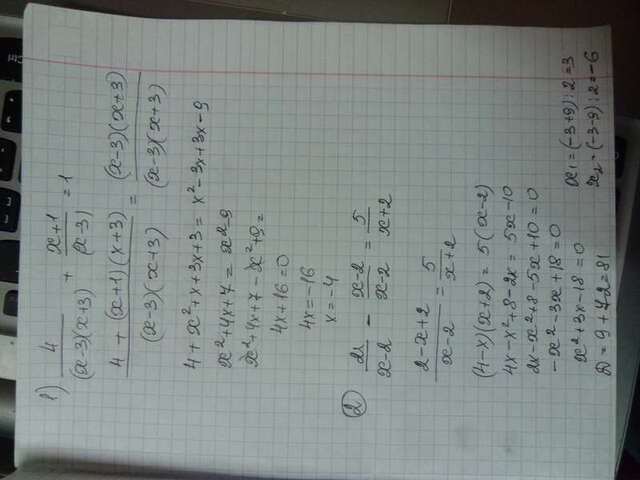 1) 4/((x-3)(x+3)) + (x+1)/(x-3) = 1
(4+(x+1)(x+3))/((x-3)(x+3)) = ((x-3)(x+3))/((x-3)(x+3))
4+x²+x+3x+3 = x²-3x+3x-9
x²+4x+7 = x²-9
x²+4x+7-x²+9=
4x+16=0
4x=-16
x=-4
2) 2/(x-2) - (x-2)/(x-2) = 5/(x+2)
(2-x+2)/(x-2) = 5/(x+2)
(4-x)(x+2) = 5(x-2)
4x-x²+8-2x = 5x-10
2x-x²+8-5x+10=0
-x²-3x+18=0
x²+3x-18=0
D=9+72=81
x₁=(-3+9):2=3
x₂=(-3-9):2=-6